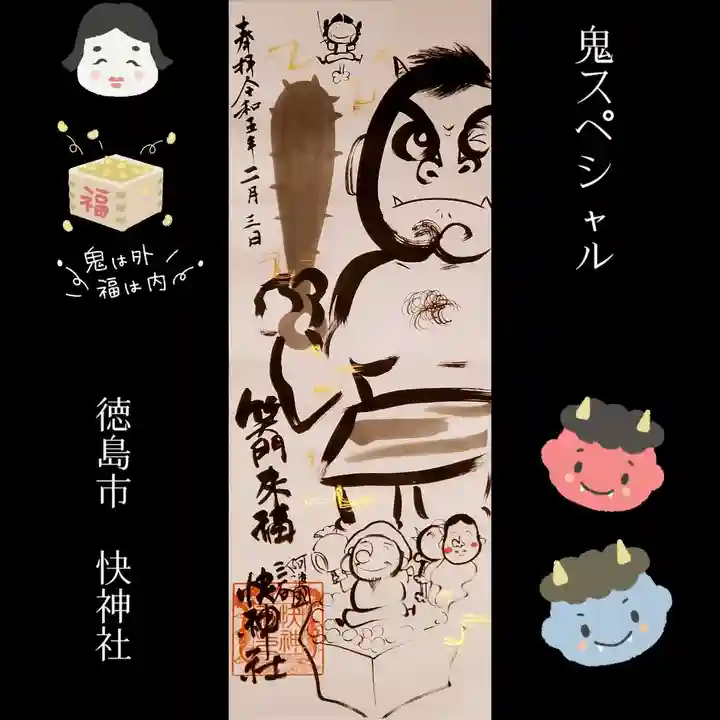 鬼スペシャル
福
鬼は外
福は内
徳島市 快神社
奉拝 令和五年 二月三日
笑門来福
阿波國
三石
快神社